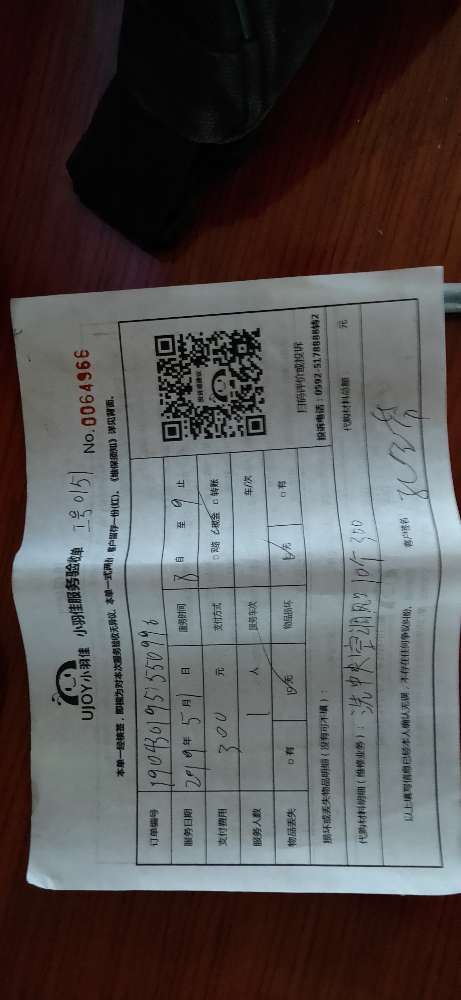 UJOY小羽佳 小羽佳服务验收单 工号0151 No.0064966
本单一经核签，即视为对本次服务验收无异议。本单一式两份，客户留存一份(红)。《维保须知》详见背面。
订单编号 19043019515550996
服务日期 2019年5月1日 服务时间 8自 至9止
支付费用 300元 支付方式 □网络 ☑现金 □转账
服务人数 1人 服务车次 车/次
物品丢失 □有 ☑无 物品损坏 ☑无 □有
扫码评价或投诉
投诉电话：0592-5178888转2
损坏或丢失物品明细（没有可不填）：
代购材料明细（维修业务）：洗中央空调风口10个300 代购材料总额 元
以上填写信息已经本人确认无误，不存在任何争议纠纷。 客户签名